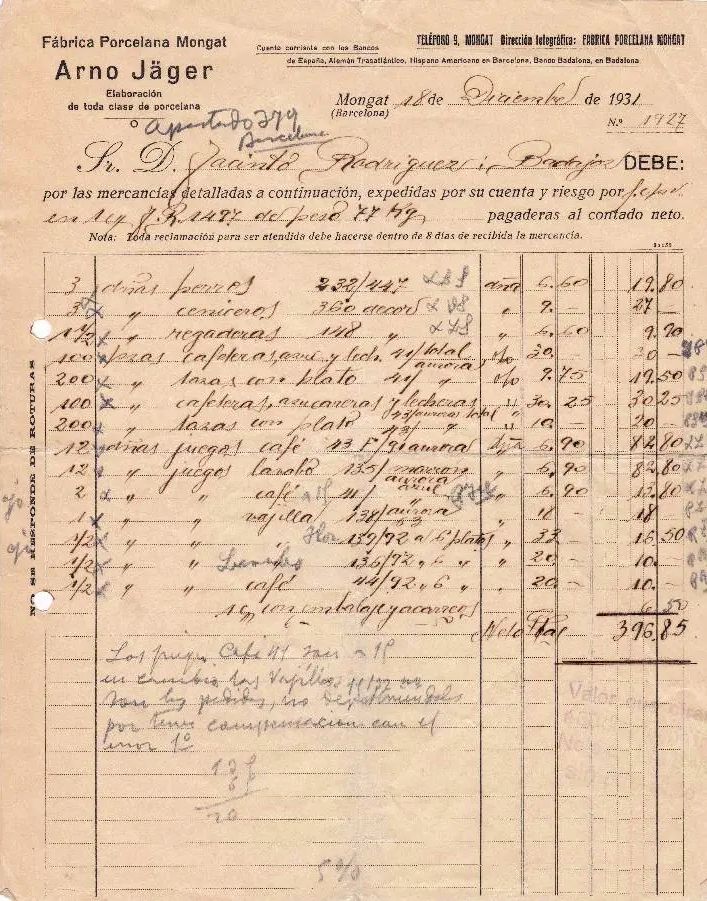 Fábrica Porcelana Mongat
Arno Jäger
Elaboración
de toda clase de porcelana
TELÉFONO 9, MONGAT Dirección telegráfica: FABRICA PORCELANA MONGAT
Cuenta corriente con los Bancos
de España, Alemán Trasatlántico, Hispano Americano en Barcelona, Banco Badalona, en Badalona
Mongat 18 de Diciembre de 1931
(Barcelona)
N.º 1927
apartado 379
Barcelona
Sr. D. Jacinto Rodriguez; Badajoz DEBE:
por las mercancías detalladas a continuación, expedidas por su cuenta y riesgo por
en J.R. 1497 de peso 77 Kg pagaderas al contado neto.
Nota: Toda reclamación para ser atendida debe hacerse dentro de 8 días de recibida la mercancía.
NO SE RESPONDE DE ROTURAS
3 dnas perros 232/447 dna 6.60 19.80
3 " ceniceros 360 decors " 9.- 27 -
1 1/2 " regaderas 148 " " 6.60 9.90
100 pzas cafeteras, azuc. y lech. 41/total aurora o/o 30.- 30 -
200 " tazas con plato 41/ " o/o 9.75 19.50
100 " cafeteras, azucareros y lecheras 43/aurora total " 30.25 30 25
200 " tazas con plato 43/ " " 10 - 20 -
12 dnas juegos café 43 F/91 aurora dna 6.90 82.80
12 " juegos 135/marron aurora " 6.90 82.80
2 " " café 41/ azul " 6.90 13.80
1 " " vajilla 138/aurora " 18 - 18
1/2 " " 139/92 a 6 platos " 33 - 16 50
1/2 " " 136/92 " 6 " " 20 - 10 -
1/2 " " café 44/92 " 6 " " 20.- 10.-
con embalaje y acarreos 6.50
Neto Ptas 396.85
Los juegos Café 41 son a 1ª
en cambio las Vajillas no
son las pedidas, no
por tener compensacion con el
error 1º
20
5 %